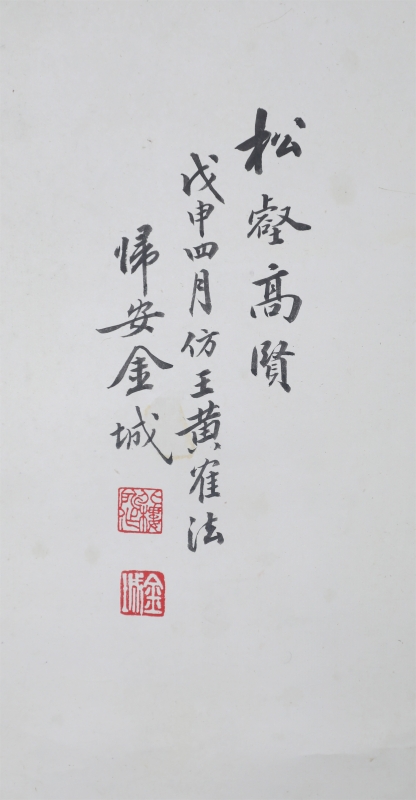 松壑高賢
戊申四月仿王黄隺法
帰安金城
金城